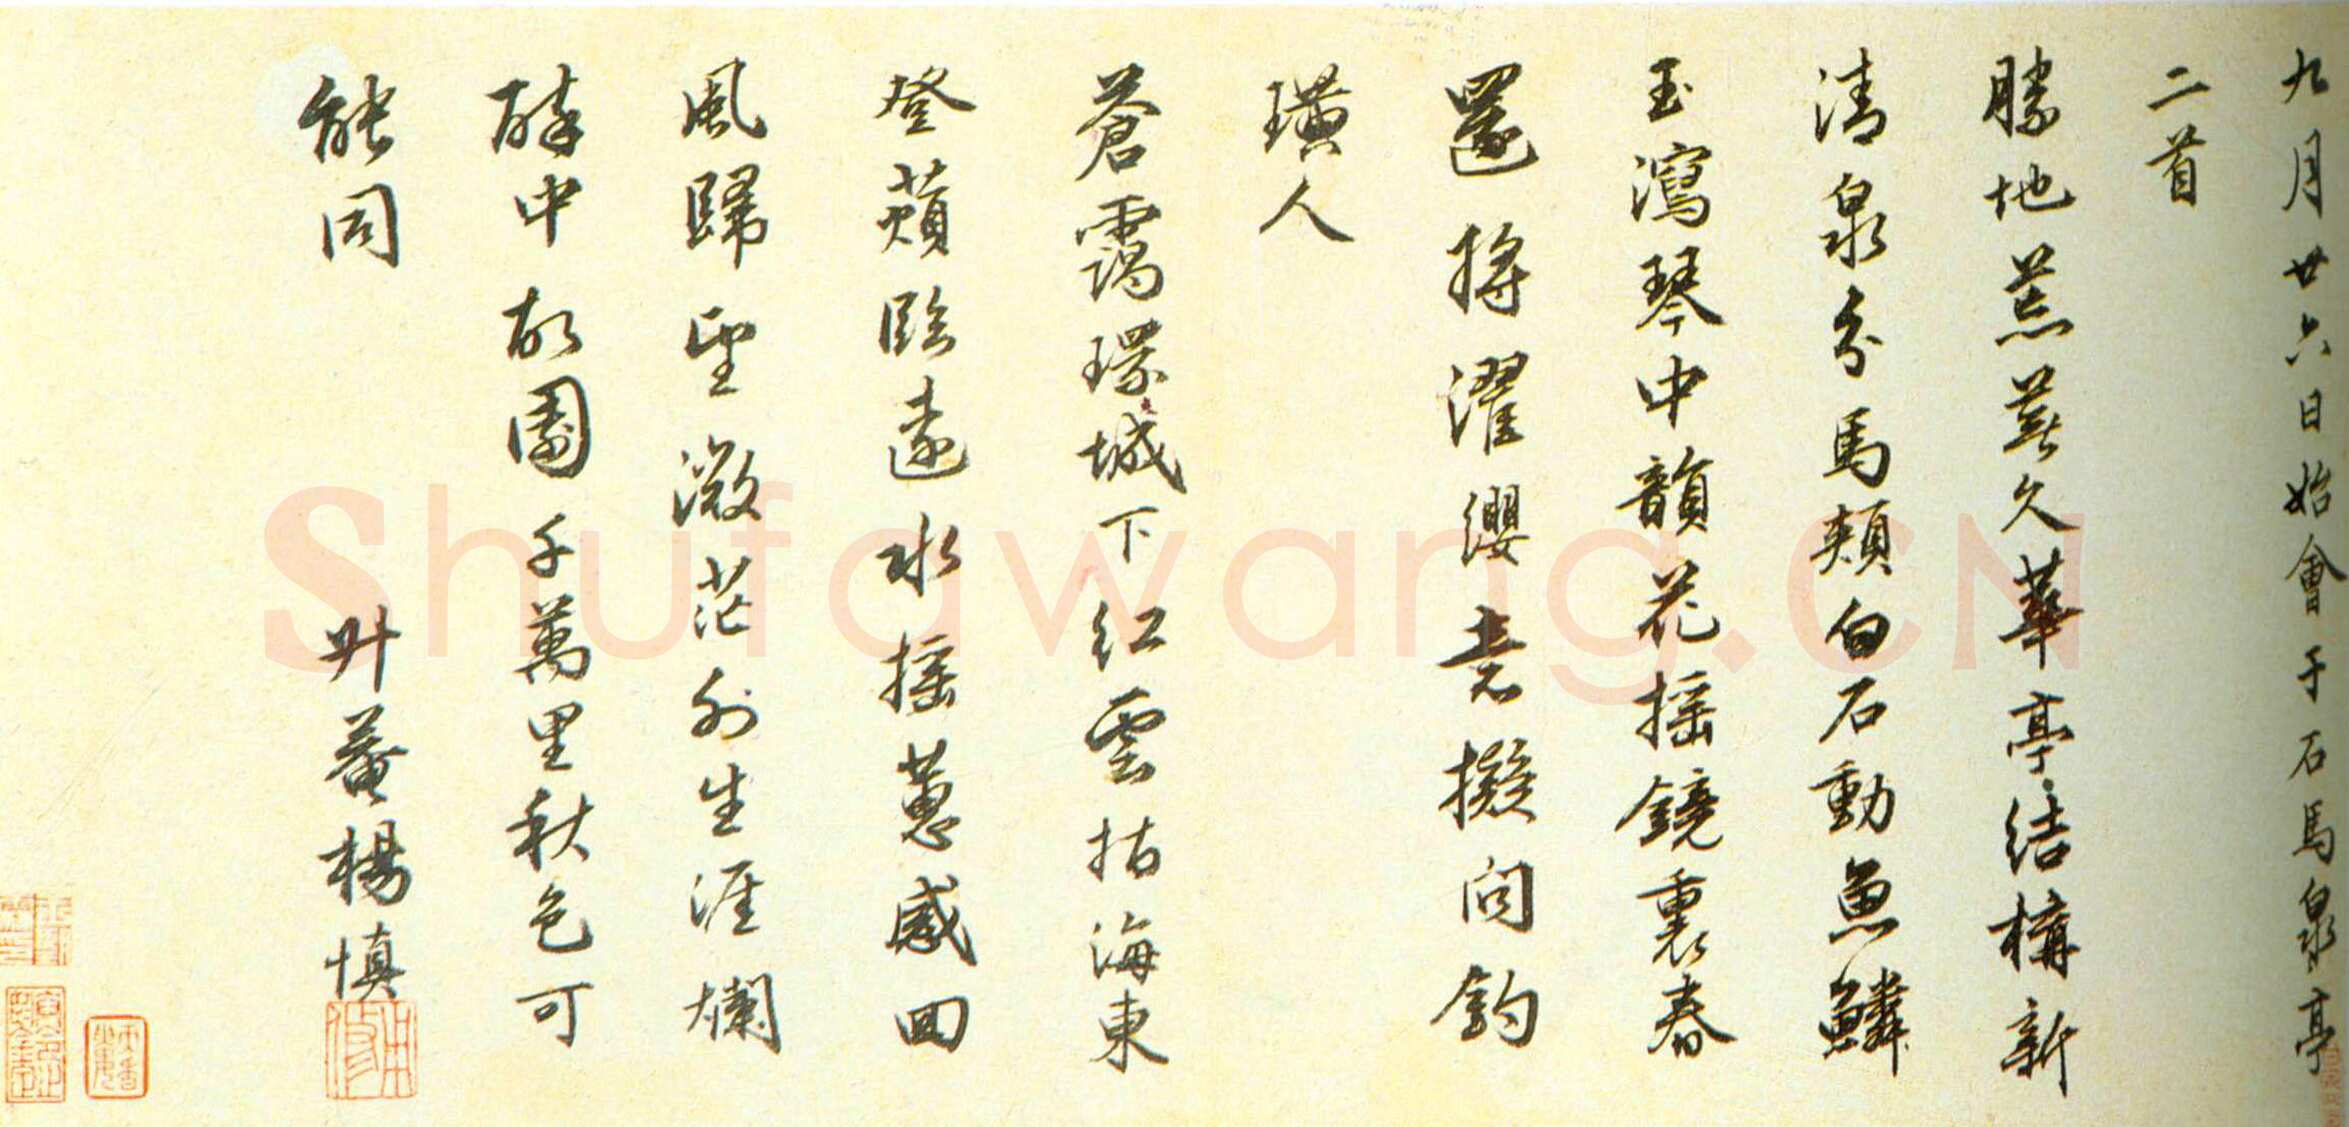 九月廿六日始會于石馬泉亭
二首
勝地荒蕪久華亭結構新
清泉分馬頰白石動魚鱗
玉瀉琴中韻花摇鏡裏春
還將濯纓意擬問釣
璜人
蒼靄環城下紅雲指海東
登蘋臨遠水摇蕙感回
風歸望微茫外生涯爛
醉中故園千萬里秋色可
能同
升菴楊慎
Shufawang.CN